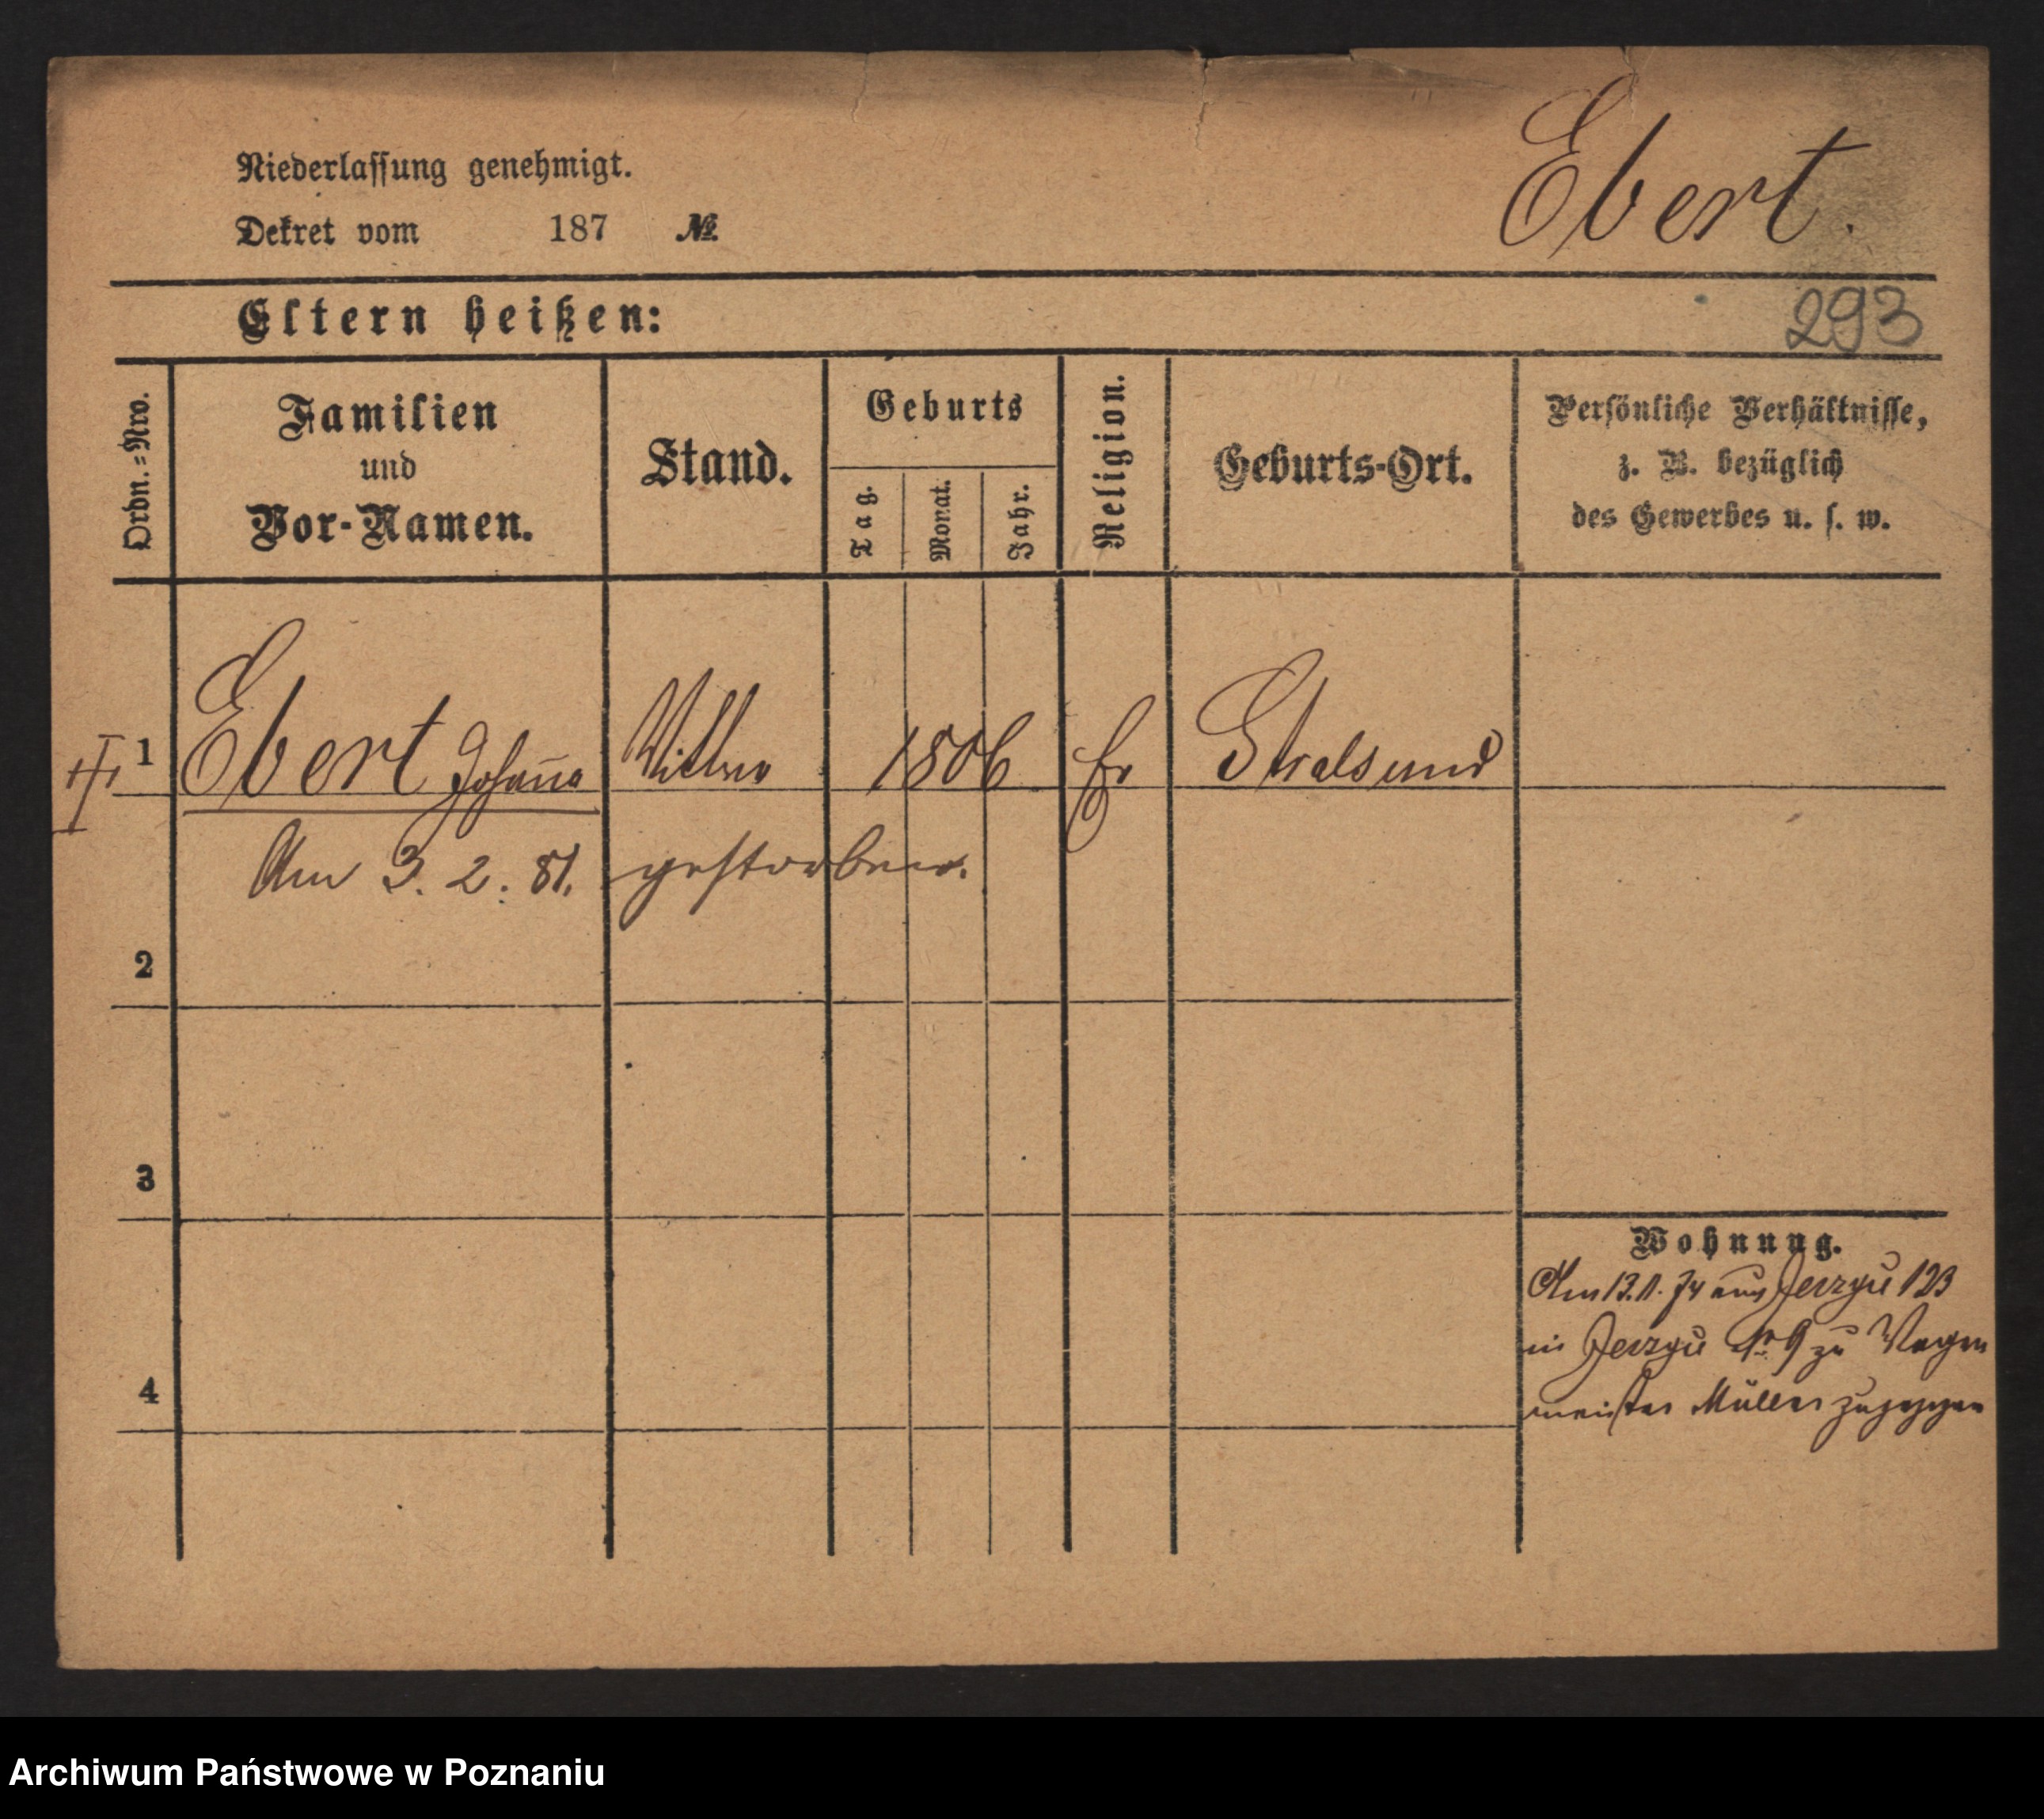 Ebert.
Niederlassung genehmigt.
Dekret vom 187 №
Eltern heißen:
293
Ordn.=Nro.
Familien
und
Vor-Namen.
Stand.
Geburts
Tag.
Monat.
Jahr.
Religion.
Geburts-Ort.
Persönliche Verhältnisse,
z. B. bezüglich
des Gewerbes u. s. w.
1 Ebert Johan̄a Wittwe 1806 Ev Stralsund
Am 3. 2. 81. gestorben.
2
3
4
Wohnung.
Am 13.1.74 aus Jerzyce 123
in Jerzyce № 9 zu Wagen
meister Müller zugezogen
Archiwum Państwowe w Poznaniu